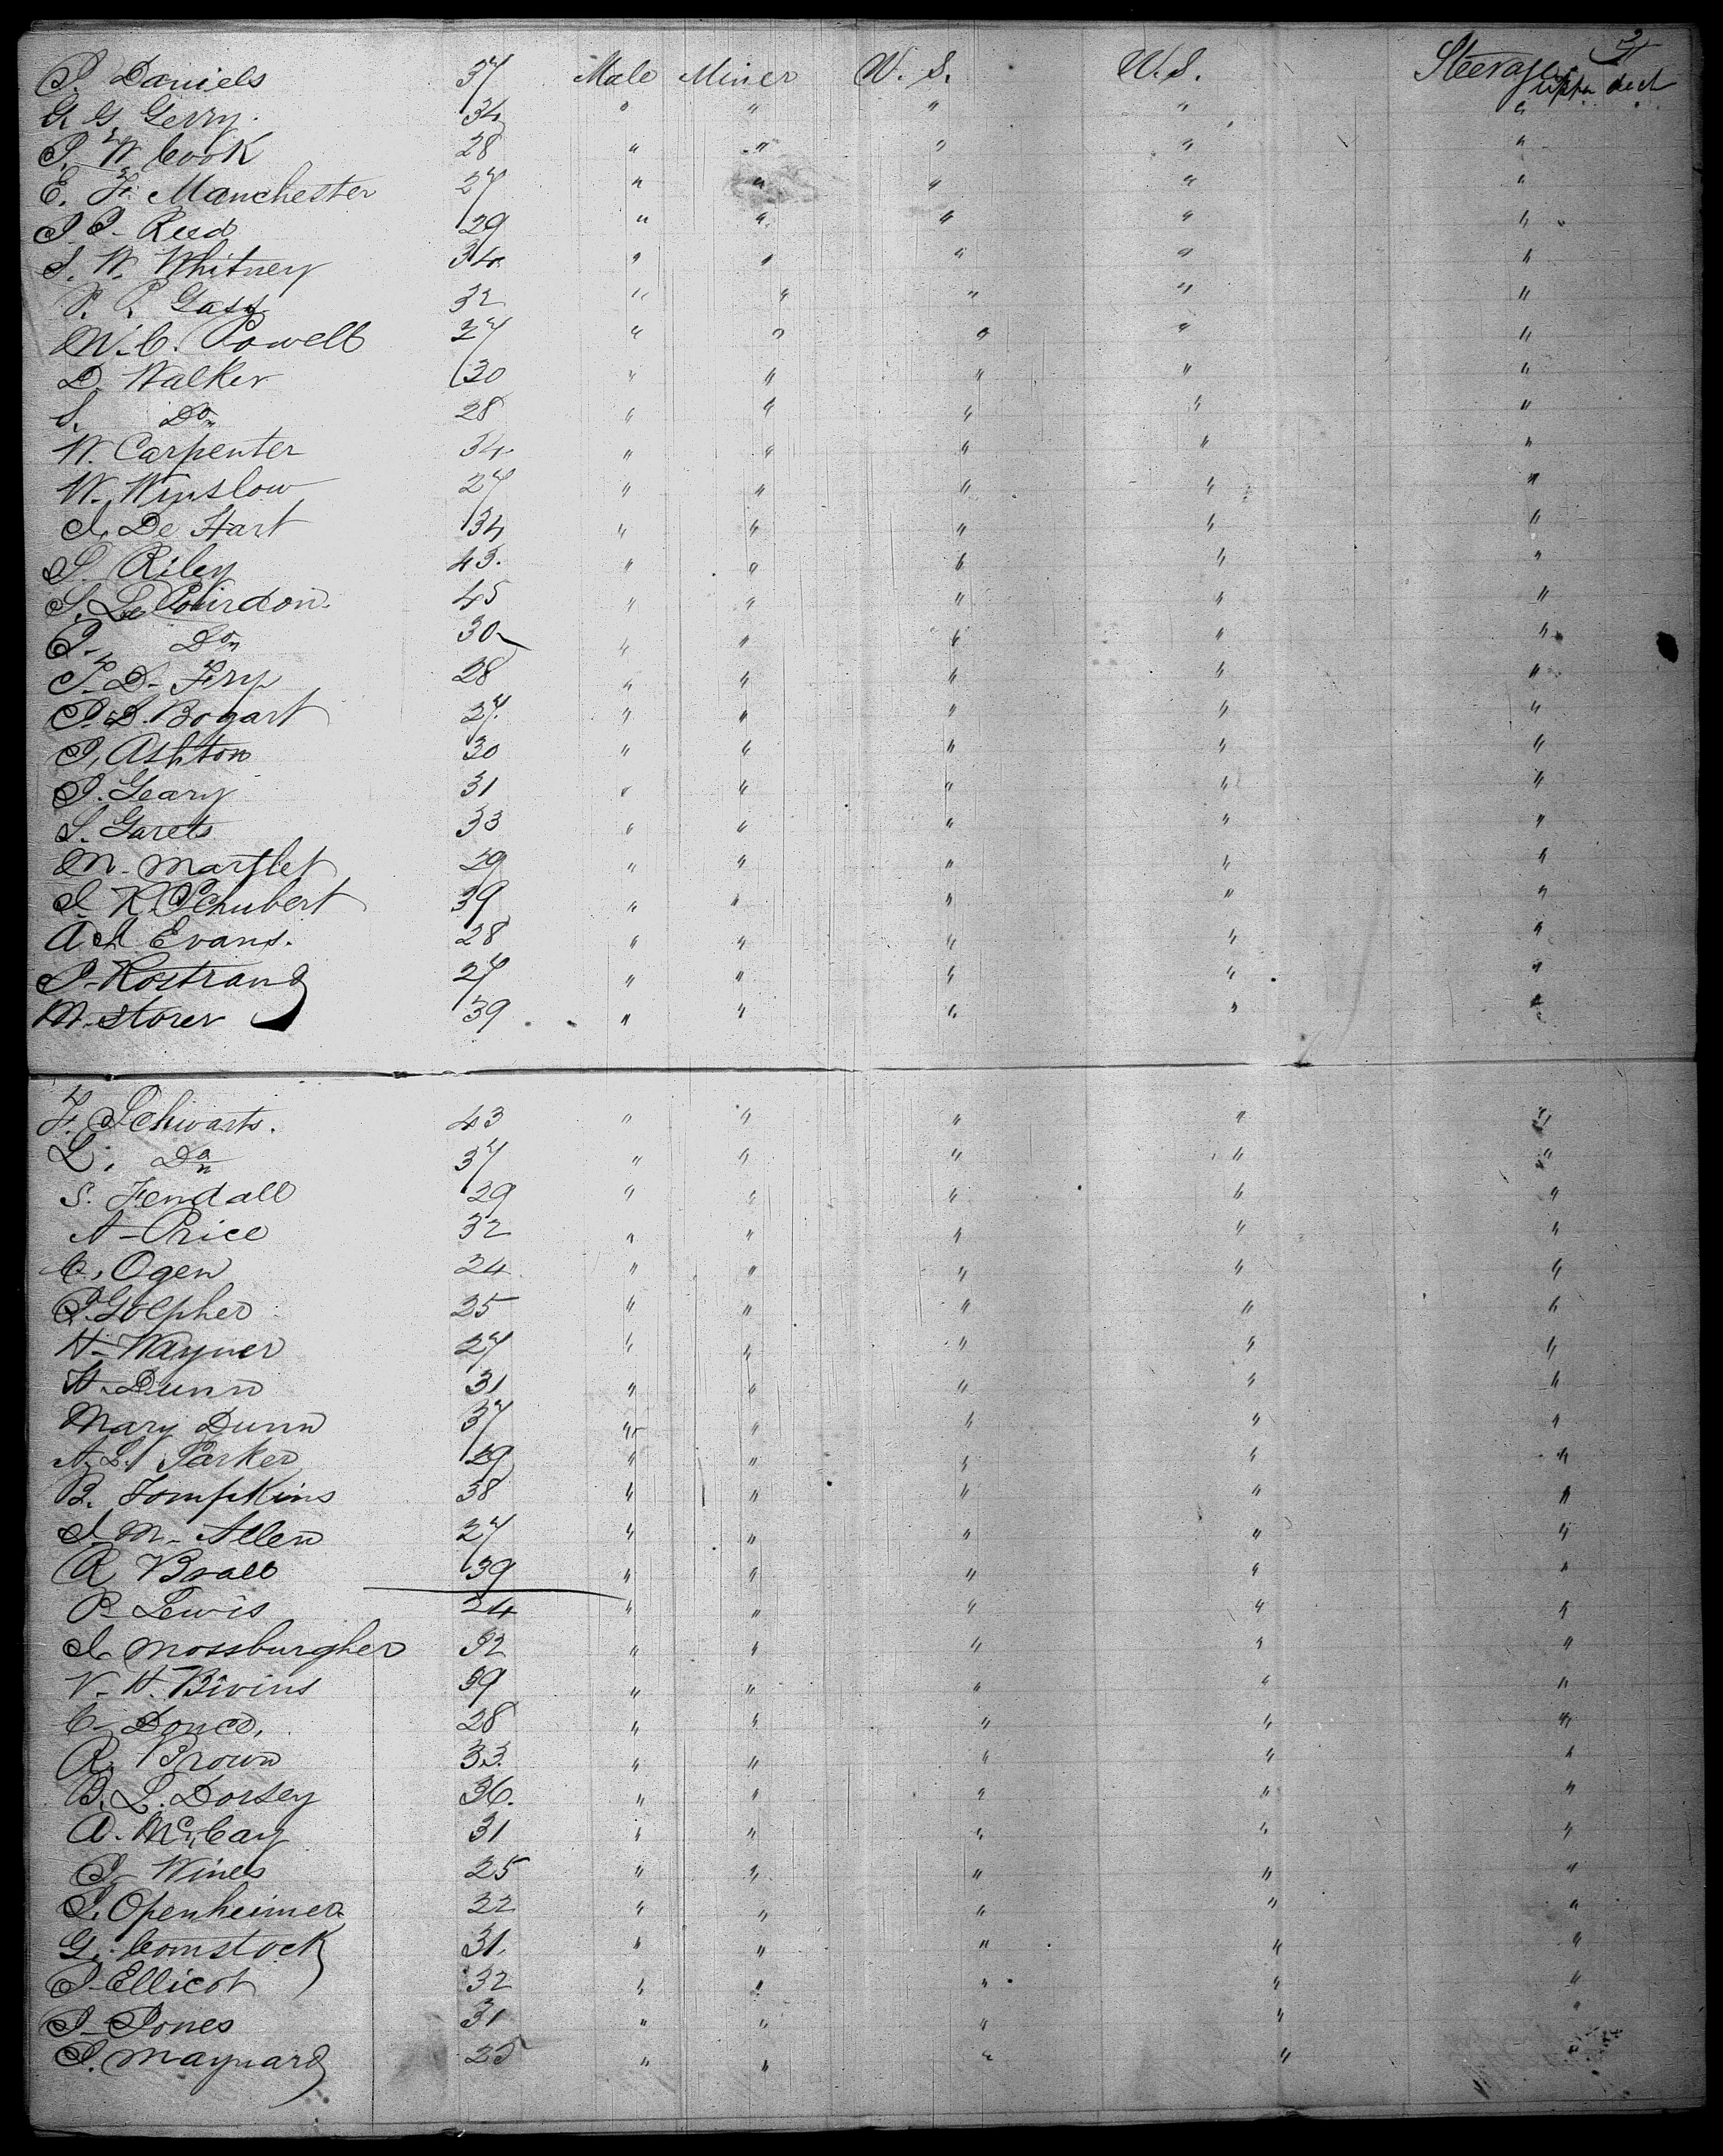 P. Daniels 37 Male Miner U. S. U. S. Steerage upper deck
G. G. Gerry. 34 " " " " "
P. W Cook 28 " " " " "
E. F. Manchester 27 " " " " "
J. P. Reed 29 " " " " "
S. W. Whitney 34 " " " " "
P. P. Gass 32 " " " " "
M. C. Powell 27 " " " " "
D. Walker 30 " " " " "
S. Do 28 " " " " "
W. Carpenter 34 " " " " "
W. Winslow 27 " " " " "
J. De Hart 34 " " " " "
S. Riley 43. " " " " "
S. Le 45 " " " " "
P. Do 30 " " " " "
T. D. Fry 28 " " " " "
P. D. Bogart 27. " " " " "
J. Ashton 30 " " " " "
P. Geary 31 " " " " "
S. Garets 33 " " " " "
M. Martlet 29 " " " " "
J. K. Schubert 39 " " " " "
A J Evans. 28 " " " " "
P. Kostrand 27 " " " " "
M. Storer 39 " " " " "
F. Schwarts. 43 " " " " "
L. Do 37 " " " " "
S. Fendall 29 " " " " "
A. Price 32 " " " " "
C. Ogen 24 " " " " "
P. Golpher 25 " " " " "
H. Wayner 27 " " " " "
H. Dunn 31 " " " " "
Mary Dunn 37 " " " " "
A. L. Parker 29 " " " " "
B. Tompkins 38 " " " " "
J. M. Allen 27 " " " " "
R Brall 39 " " " " "
P. Lewis 24 " " " " "
J. Mossburgher 32 " " " " "
V. H. Bivins 39 " " " " "
C. 28 " " " " "
R. Brown 33. " " " " "
B. L. Dorsey 36. " " " " "
A. McCay 31 " " " " "
J. Wines 25 " " " " "
S. Openheimer 22 " " " " "
G. Comstock 31. " " " " "
J. Ellicot 32 " " " " "
J. Jones 31 " " " " "
J. Maynard 25 " " " "